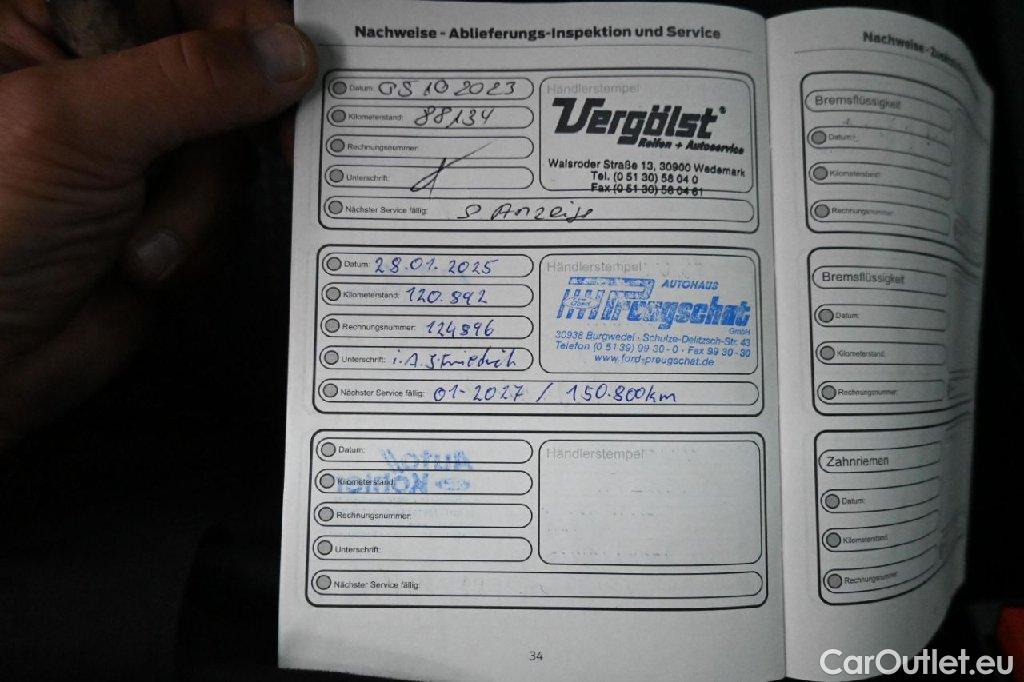 Nachweise - Ablieferungs-Inspektion und Service
Datum: 05 10 2023
Kilometerstand: 88134
Rechnungsnummer:
Unterschrift:
Nächster Service fällig: S Anzeige
Händlerstempel
Vergölst
Reifen + Autoservice
Walsroder Straße 13, 30900 Wedemark
Tel. (0 51 30) 58 04 0
Fax (0 51 30) 58 04 61
Datum: 28.01.2025
Kilometerstand: 120.892
Rechnungsnummer: 124896
Unterschrift: i.A.
Nächster Service fällig: 01-2027 / 150.800km
Händlerstempel
AUTOHAUS
Preugschat
GmbH
30938 Burgwedel · Schulze-Delitzsch-Str. 43
Telefon (0 51 39) 99 30 - 0 · Fax 99 30 - 30
www.ford-preugschat.de
Datum:
Kilometerstand:
Rechnungsnummer:
Unterschrift:
Nächster Service fällig:
Händlerstempel
34
Nachweise -
Bremsflüssigkeit
Datum:
Kilometerstand:
Rechnungsnummer:
Bremsflüssigkeit
Datum:
Kilometerstand:
Rechnungsnummer:
Zahnriemen
Datum:
Kilometerstand:
Rechnungsnummer:
CarOutlet.eu